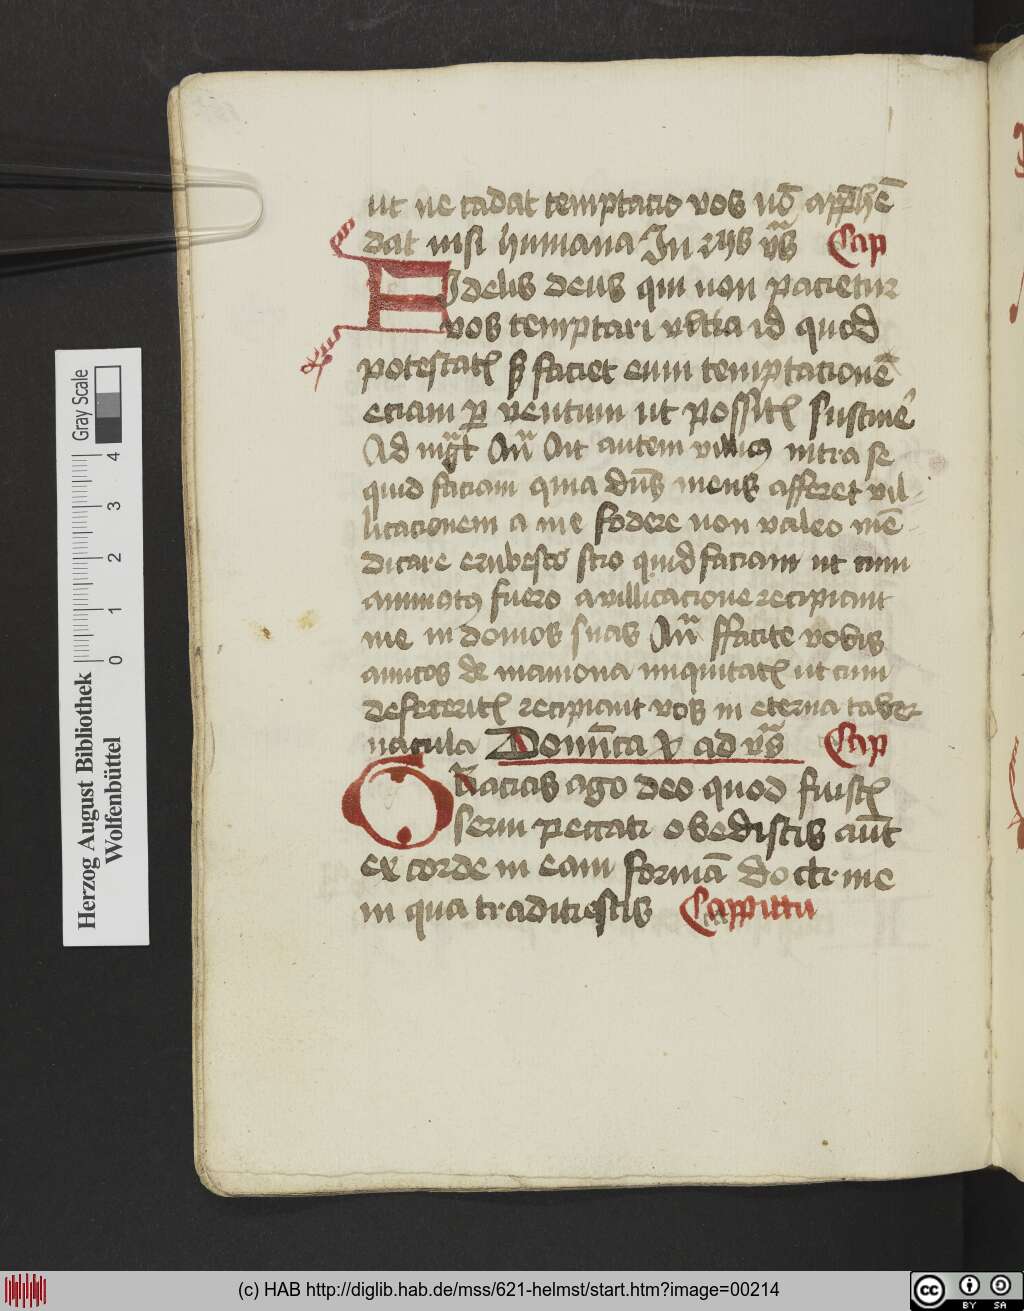 ut ne cadat temptacio vos nō app̄hē
dat nisi humana In 2ijs v̄s Cap
Fidelis deus qui non pacietur
vos temptari vltra id quod
potestatꝭ sꝫ faciet cum temptacionē
eciam ꝓventum ut possitꝭ sustinē
Ad mgt An Ait autem villicꝯ intra se
quid faciam quia dn̄s meus afferet vil
licacionem a me fodere non valeo mē
dicare erubesco scio quid faciam ut cum
ammotꝯ fuero a villicacione recipiant
me in domos suas An ffacite vobis
amicos de mamona iniquitatꝭ ut cum
defeceritꝭ recipiant vos in eterna taber
nacula Domīca x ad v̄s Cap
Gracias ago deo quod fuistꝭ
serui peccati obedistis aūt
ex corde in eam formā doctrine
in qua traditi estis Cappittu
Gray Scale
0 1 2 3 4
Herzog August Bibliothek
Wolfenbüttel
(c) HAB http://diglib.hab.de/mss/621-helmst/start.htm?image=00214
cc BY SA